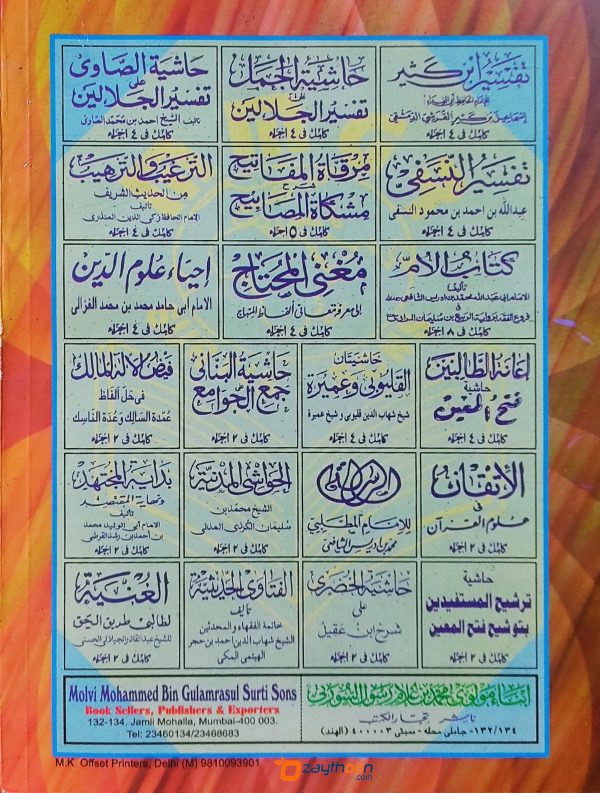 تفسير ابن كثير
للإمام الحافظ أبي الفداء
إسماعيل بن كثير القرشي الدمشقي
كامل في ٤ اجزاء
حاشية الجمل
على
تفسير الجلالين
كامل في ٤ اجزاء
حاشية الصاوي
على
تفسير الجلالين
تاليف الشيخ احمد بن محمد الصاوى
كامل في ٤ اجزاء
تفسير النسفي
عبدالله بن احمد بن محمود النسفى
كامل في ٤ اجزاء
مرقاة المفاتيح
شرح
مشكاة المصابيح
كامل في ٥ اجزاء
الترغيب والترهيب
من الحديث الشريف
تأليف
الامام الحافظ زكى الدين المنذرى
كامل في ٤ اجزاء
كتاب الأم
تأليف
الامام ابى عبدالله محمد بن ادريس الشافعى
فى
كامل في ٨ اجزاء
مغني المحتاج
إلى معرفة معاني ألفاظ المنهاج
كامل في ٤ اجزاء
إحياء علوم الدين
الامام أبي حامد محمد بن محمد الغزالى
كامل في ٤ اجزاء
إعانة الطالبين
حاشية
فتح المعين
كامل في ٤ اجزاء
حاشيتان
القليوبى وعميرة
شيخ شهاب الدين قليوبى و شيخ عميرة
كامل في ٤ اجزاء
حاشية البناني
على
جمع الجوامع
كامل في ٢ اجزاء
فيض الإله المالك
في حل ألفاظ
عمدة السالك وعدة الناسك
كامل في ٢ اجزاء
الإتقان
في
علوم القرآن
كامل في ٢ اجزاء
الرسالة
للإمام المطلبي
محمد بن إدريس الشافعي
الحواشى المدنية
الشيخ محمد بن
سليمان الكردي المدنى
كامل في ٢ اجزاء
بداية المجتهد
ونهاية المقتصد
تأليف
الامام أبي الوليد محمد
بن احمد بن رشد القرطبى
كامل في ٢ اجزاء
حاشية
ترشيح المستفيدين
بتوشيح فتح المعين
كامل في ٢ اجزاء
حاشية الخضري
على
شرح ابن عقيل
كامل في ٢ اجزاء
الفتاوى الحديثية
تأليف
خاتمة الفقهاء والمحدثين
الشيخ شهاب الدين احمد بن حجر
الهيتمى المكى
الغنية
لطالبي طريق الحق
للشيخ عبدالقادر الجيلانى الحسنى
كامل في ٢ اجزاء
ابناء مولوي محمد بن غلام رسول السورتي
ناشر تجار الكتب
١٣٢/١٣٤- جاملى محله - ممبئى ٤٠٠٠٠٣ (الهند)
Molvi Mohammed Bin Gulamrasul Surti Sons
Book Sellers, Publishers & Exporters
132-134, Jamli Mohalla, Mumbai-400 003.
Tel: 23460134/23468683
M.K. Offset Printers, Delhi (M) 9810093901
zaythoon
.com